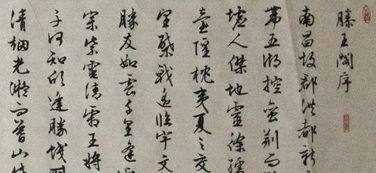 滕王阁序
南昌故郡洪都新
带五湖控蛮荆而
墟人杰地靈徐孺
臺隍枕夷夏之交
望棨戟遥临宇文
勝友如雲千里逢
宗紫電清霜王將
子何知躬逢勝餞
清烟光凝而暮山紫